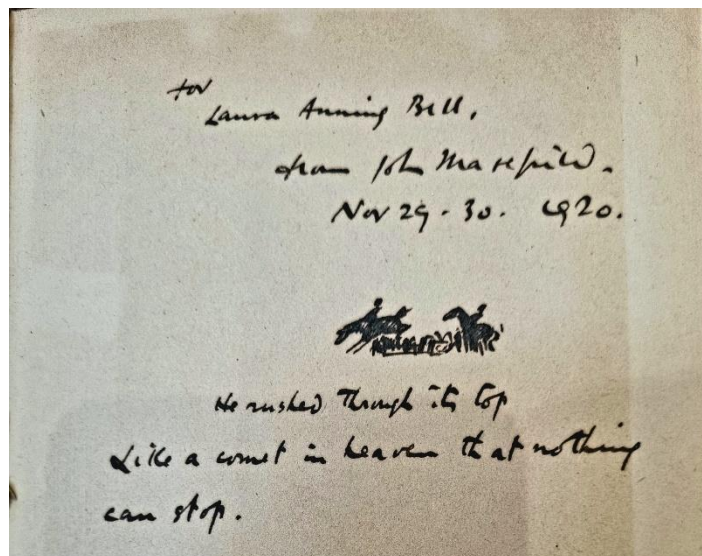 for
Laura Anning Bell,
from John Masefield.
Nov 29 - 30. 1920.
He rushed through its top
Like a comet in heaven that nothing
can stop.